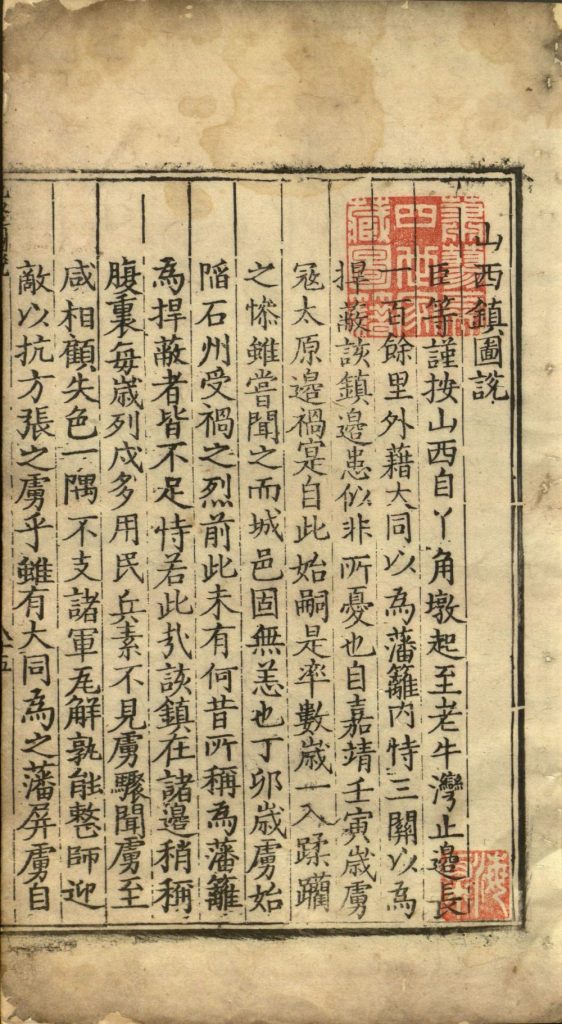 山西鎮圖說
臣等謹按山西自丫角墩起至老牛灣止邊長
一百餘里外藉大同以為藩籬內恃三關以為
捍蔽該鎮邊患似非所憂也自嘉靖壬寅歲虜
寇太原邊禍寔自此始嗣是率數歲一入蹂躪
之慘雖嘗聞之而城邑固無恙也丁卯歲虜始
陷石州受禍之烈前此未有何昔所稱為藩籬
為捍蔽者皆不足恃若此哉該鎮在諸邊稍稱
腹裏每歲列戍多用民兵素不見虜驟聞虜至
咸相顧失色一隅不支諸軍瓦解孰能整師迎
敵以抗方張之虜乎雖有大同為之藩屏虜自